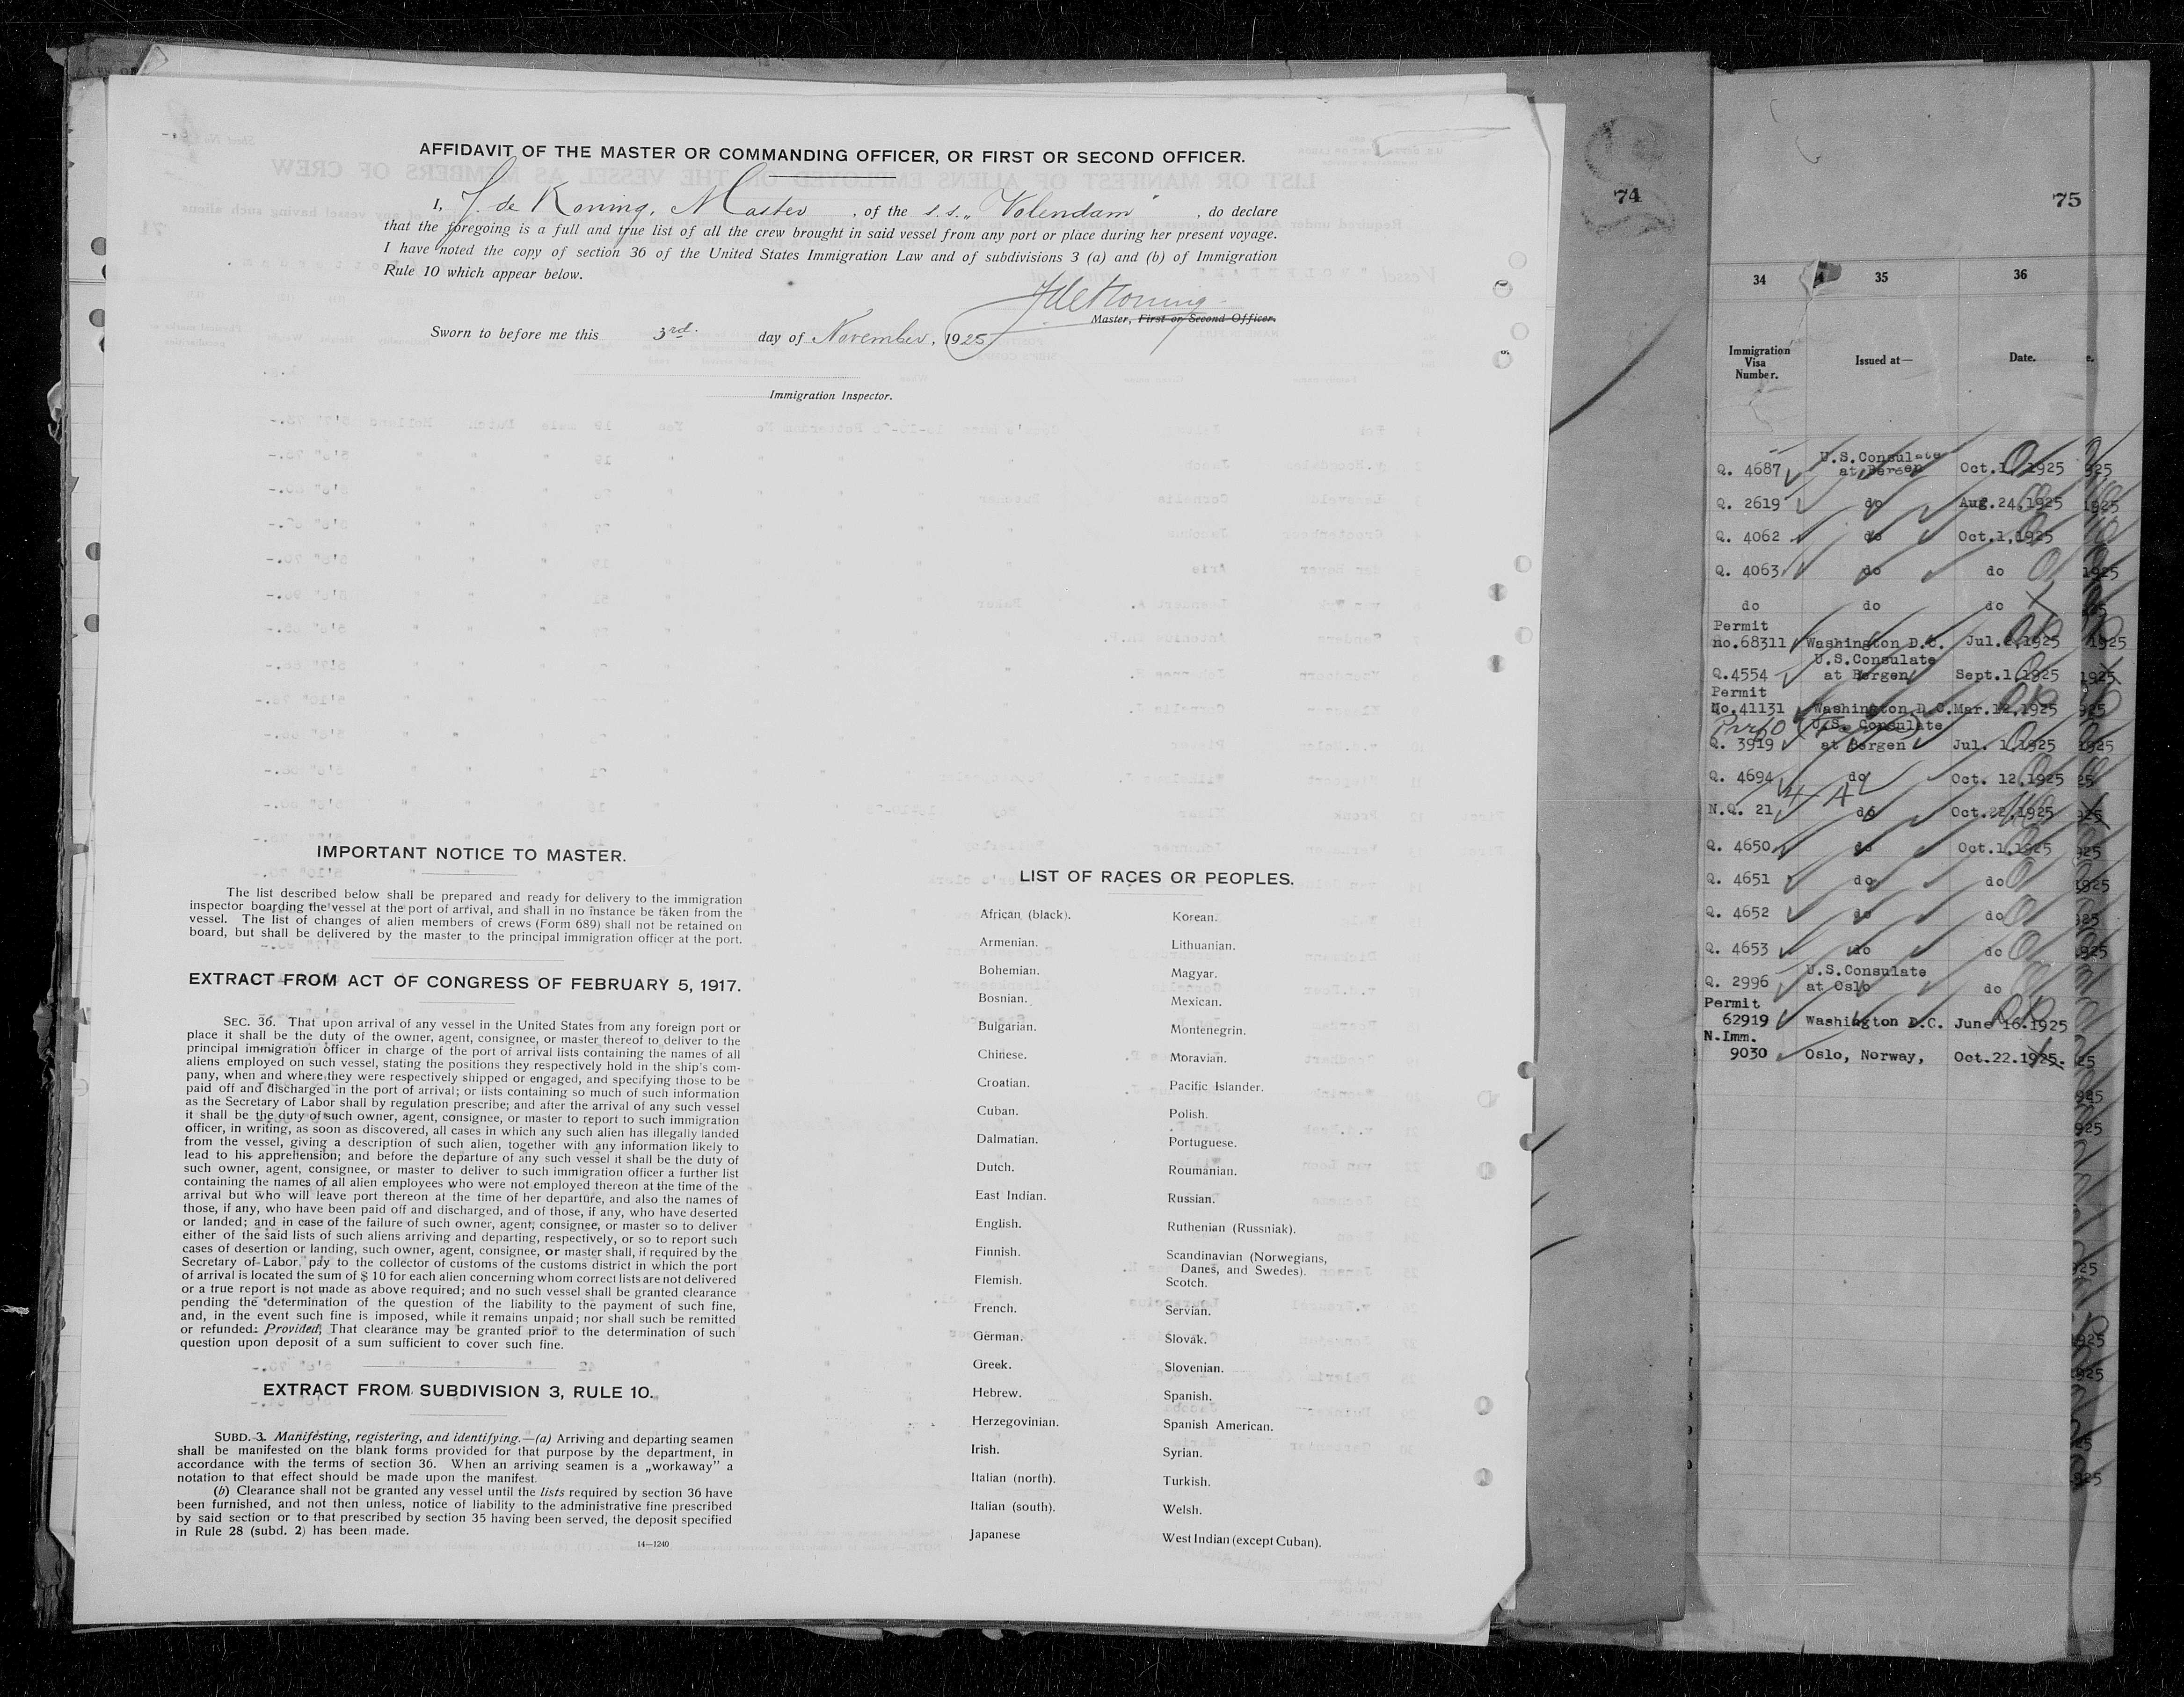 AFFIDAVIT OF THE MASTER OR COMMANDING OFFICER, OR FIRST OR SECOND OFFICER.
I, J. de Koning, Master, of the s.s. „Volendam", do declare
that the foregoing is a full and true list of all the crew brought in said vessel from any port or place during her present voyage.
I have noted the copy of section 36 of the United States Immigration Law and of subdivisions 3 (a) and (b) of Immigration
Rule 10 which appear below.
JdeKoning
Master, First or Second Officer.
Sworn to before me this 3rd. day of November, 1925
Immigration Inspector.
IMPORTANT NOTICE TO MASTER.
The list described below shall be prepared and ready for delivery to the immigration
inspector boarding the vessel at the port of arrival, and shall in no instance be taken from the
vessel. The list of changes of alien members of crews (Form 689) shall not be retained on
board, but shall be delivered by the master to the principal immigration officer at the port.
EXTRACT FROM ACT OF CONGRESS OF FEBRUARY 5, 1917.
SEC. 36. That upon arrival of any vessel in the United States from any foreign port or
place it shall be the duty of the owner, agent, consignee, or master thereof to deliver to the
principal immigration officer in charge of the port of arrival lists containing the names of all
aliens employed on such vessel, stating the positions they respectively hold in the ship's com-
pany, when and where they were respectively shipped or engaged, and specifying those to be
paid off and discharged in the port of arrival; or lists containing so much of such information
as the Secretary of Labor shall by regulation prescribe; and after the arrival of any such vessel
it shall be the duty of such owner, agent, consignee, or master to report to such immigration
officer, in writing, as soon as discovered, all cases in which any such alien has illegally landed
from the vessel, giving a description of such alien, together with any information likely to
lead to his apprehension; and before the departure of any such vessel it shall be the duty of
such owner, agent, consignee, or master to deliver to such immigration officer a further list
containing the names of all alien employees who were not employed thereon at the time of the
arrival but who will leave port thereon at the time of her departure, and also the names of
those, if any, who have been paid off and discharged, and of those, if any, who have deserted
or landed; and in case of the failure of such owner, agent, consignee, or master so to deliver
either of the said lists of such aliens arriving and departing, respectively, or so to report such
cases of desertion or landing, such owner, agent, consignee, or master shall, if required by the
Secretary of Labor, pay to the collector of customs of the customs district in which the port
of arrival is located the sum of $ 10 for each alien concerning whom correct lists are not delivered
or a true report is not made as above required; and no such vessel shall be granted clearance
pending the determination of the question of the liability to the payment of such fine,
and, in the event such fine is imposed, while it remains unpaid; nor shall such be remitted
or refunded: Provided, That clearance may be granted prior to the determination of such
question upon deposit of a sum sufficient to cover such fine.
EXTRACT FROM SUBDIVISION 3, RULE 10.
SUBD. 3. Manifesting, registering, and identifying.—(a) Arriving and departing seamen
shall be manifested on the blank forms provided for that purpose by the department, in
accordance with the terms of section 36. When an arriving seamen is a „workaway" a
notation to that effect should be made upon the manifest.
(b) Clearance shall not be granted any vessel until the lists required by section 36 have
been furnished, and not then unless, notice of liability to the administrative fine prescribed
by said section or to that prescribed by section 35 having been served, the deposit specified
in Rule 28 (subd. 2) has been made.
14—1240
LIST OF RACES OR PEOPLES.
African (black).
Armenian.
Bohemian.
Bosnian.
Bulgarian.
Chinese.
Croatian.
Cuban.
Dalmatian.
Dutch.
East Indian.
English.
Finnish.
Flemish.
French.
German.
Greek.
Hebrew.
Herzegovinian.
Irish.
Italian (north).
Italian (south).
Japanese
Korean.
Lithuanian.
Magyar.
Mexican.
Montenegrin.
Moravian.
Pacific Islander.
Polish.
Portuguese.
Roumanian.
Russian.
Ruthenian (Russniak).
Scandinavian (Norwegians,
Danes, and Swedes).
Scotch.
Servian.
Slovak.
Slovenian.
Spanish.
Spanish American.
Syrian.
Turkish.
Welsh.
West Indian (except Cuban).
74
75
34 35 36
Immigration
Visa
Number.
Issued at—
Date.
Q. 4687 U.S.Consulate at Bergen Oct.1, 1925
Q. 2619 do Aug.24,1925
Q. 4062 do Oct.1,1925
Q. 4063 do do
do do do
Permit
no.68311 Washington D.C. Jul.2,1925
Q.4554 U.S.Consulate at Bergen Sept.1,1925
Permit
No.41131 Washington D.C. Mar.12,1925
Q. 3919 U.S. Consulate at Bergen Jul. 1,1925
Q. 4694 do Oct. 12,1925
N.Q. 21 do Oct.22,1925
Q. 4650 do Oct.1,1925
Q. 4651 do do
Q. 4652 do do
Q. 4653 do do
Q. 2996 U.S.Consulate at Oslo do
Permit
62919 Washington D.C. June 16.1925
N.Imm.
9030 Oslo, Norway, Oct.22.1925.